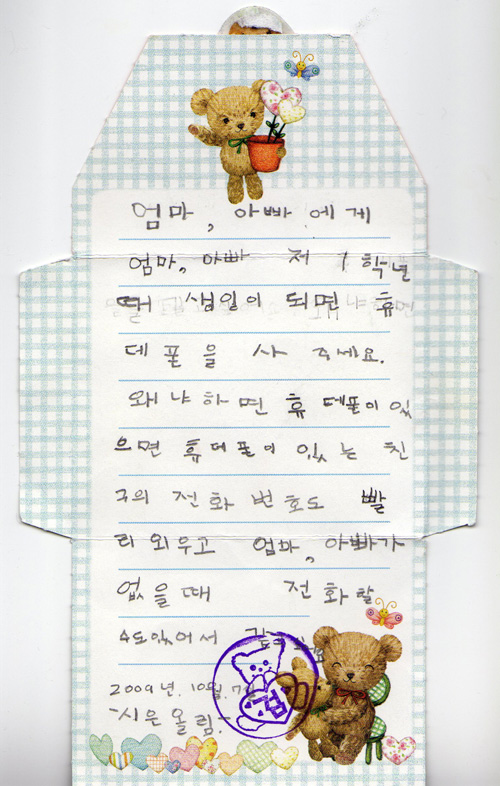 엄마, 아빠에게
엄마, 아빠 저 1학년
때 생일이 되면 휴
데폰을 사 주세요.
왜냐하면 휴데폰이 있
으면 휴데폰이 있는 친
구의 전화 번호도 빨
리 외우고 엄마, 아빠가
없을때 전화할
수도있어서
2009년. 10월. 7일
-시은 올림.-